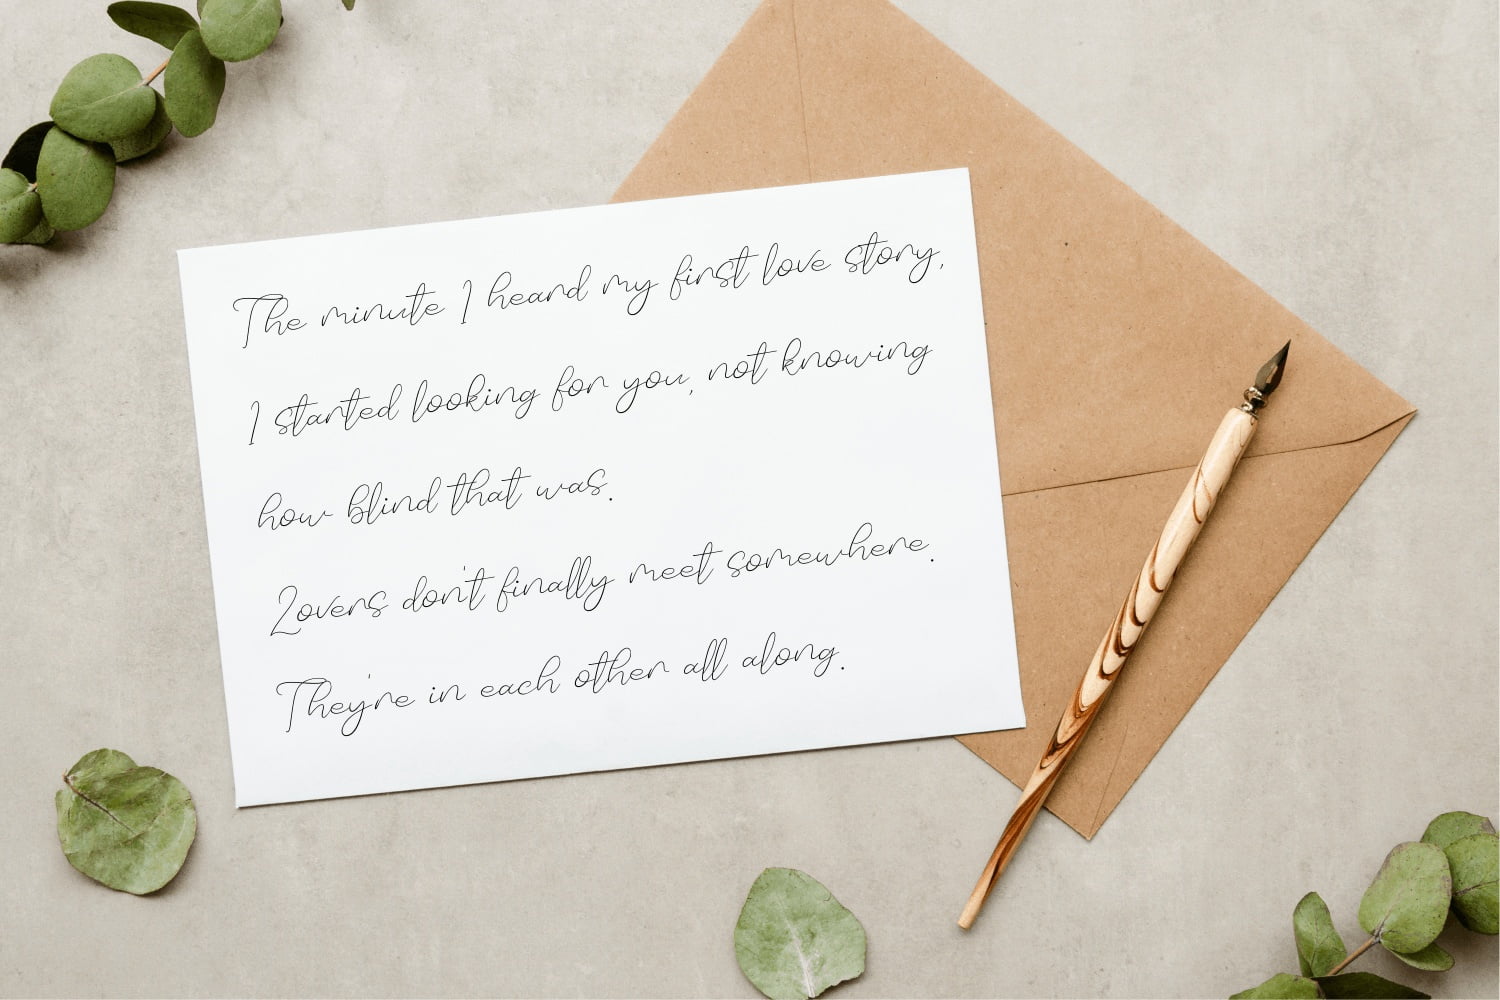 The minute I heard my first love story,
I started looking for you, not knowing
how blind that was.
Lovers don't finally meet somewhere.
They're in each other all along.